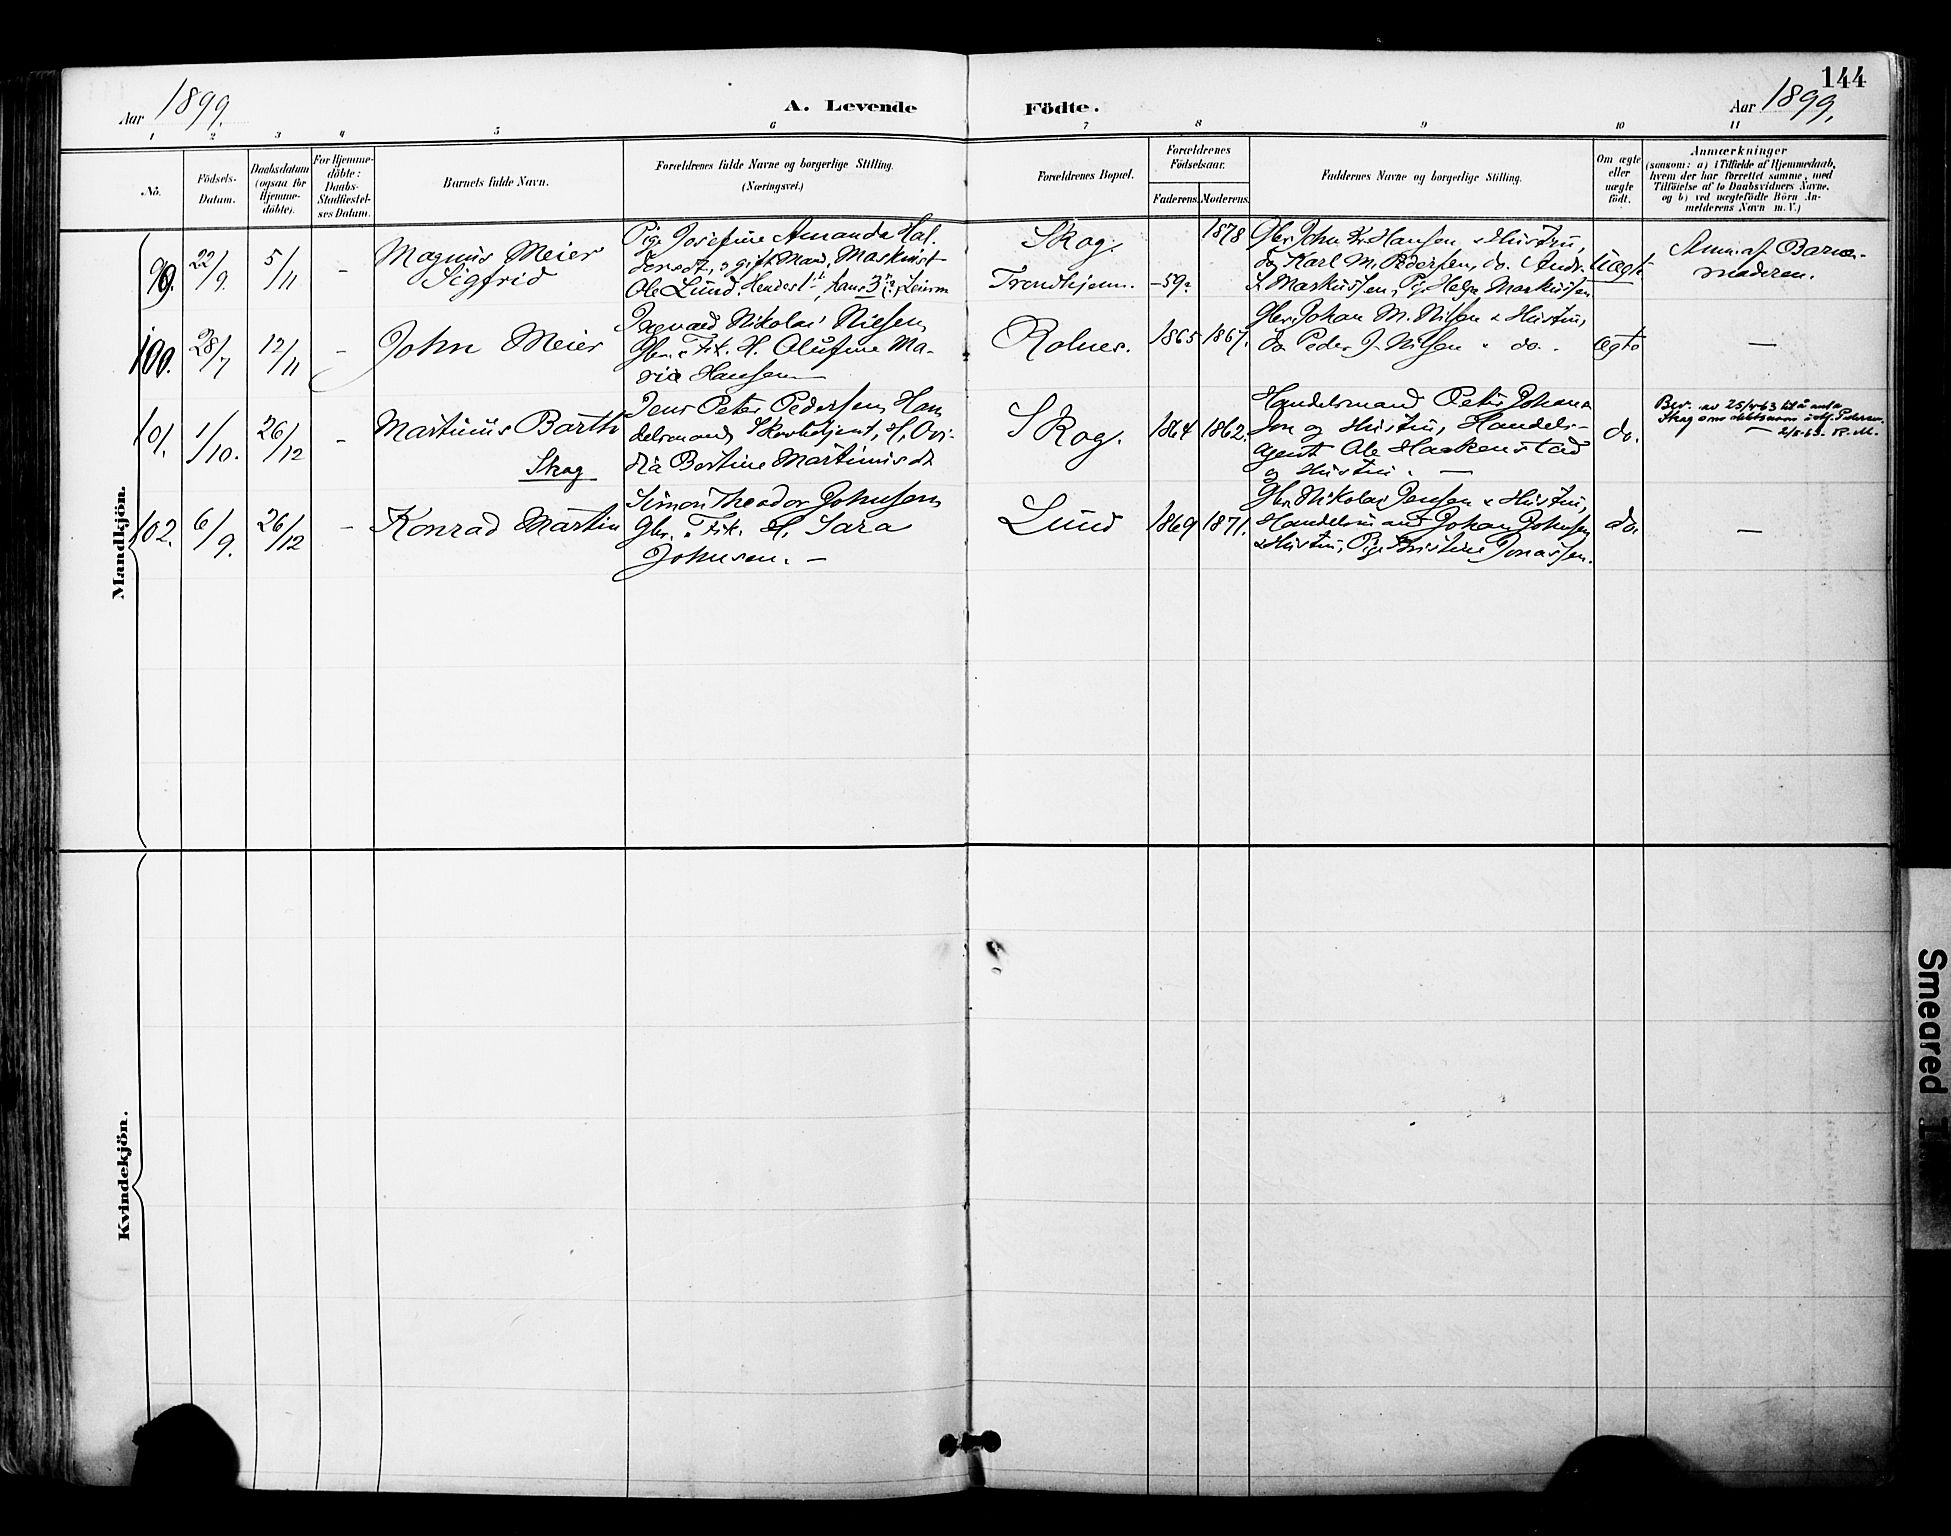 144
Aar 1899.
A. Levende Födte.
Aar 1899.
1 2 3 4 5 6 7 8 9 10 11
No.
Födsels-
Datum.
Daabsdatum
(ogsaa for
Hjemme-
döbte).
For Hjemme-
döbte:
Daabs-
Stadfæstel-
ses Datum.
Barnets fulde Navn.
Forældrenes fulde Navne og borgerlige Stilling.
(Næringsvei.)
Forældrenes Bopæl.
Forældrenes
Födselsaar.
Faderens. Moderens.
Faddernes Navne og borgerlige Stilling.
Om ægte
eller
uægte
födt.
Anmærkninger
(saasom: a) i Tilfælde af Hjemmedaab,
hvem der har forrettet samme, med
Tilföielse af to Daabsvidners Navne,
og b) ved uægtefödte Börn An-
melderens Navn m. V.)
Mandkjön.
99.
22/9.
5/11
-
Magnus Meier
Sigfrid
Pige Josefine Amanda Hal-
, gift Mand, Maskinist
Ole Lund. Hendes 1ste, hans 3die
Skog.
Trondhjem.
-59.
1878
Gbr. John Kr. Hansen & Hustru,
do Karl M. Pedersen, do. Andr.
Markussen, Pige Helga Markussen
Uægte
Anm. af Barne-
moderen.
100.
28/7
12/11
-
John Meier
Ingvard Nikolai Nilsen
Gbr. & Fisk. H. Olufine Ma-
rie Hansen
Rolnes.
1865
1867.
Gbr. Johan M. Nilsen & Hustru,
do Peder J. Nilsen & do.
Ægte
—
101.
1/10.
26/12
-
Martinus Barth
Skog
Jens Peter Pedersen, Han
delsmand, H. Ovi-
dia Bertine Martinusdt
Skog.
1864
1862.
Handelsmand Peter Johan
sen og Hustru, Handels-
agent Ole Haakenstad
og Hustru. —
do.
Bev. av 25/4-63 til å anta
Skog som slektsnavn i stf. Pedersen.
— 2/5-63. R.M.
102.
6/9.
26/12
-
Konrad Martin
Simon Theodor Johnsen
Gbr. & Fisk. H. Sara
Johnsen. —
Lund
1869
1871.
Gbr. Nikolai Jensen & Hustru,
Handelsmand Johan Johnsen
& Hustru, Pige Kristine Jonassen.
do.
—
Kvindekjön.
Smeared